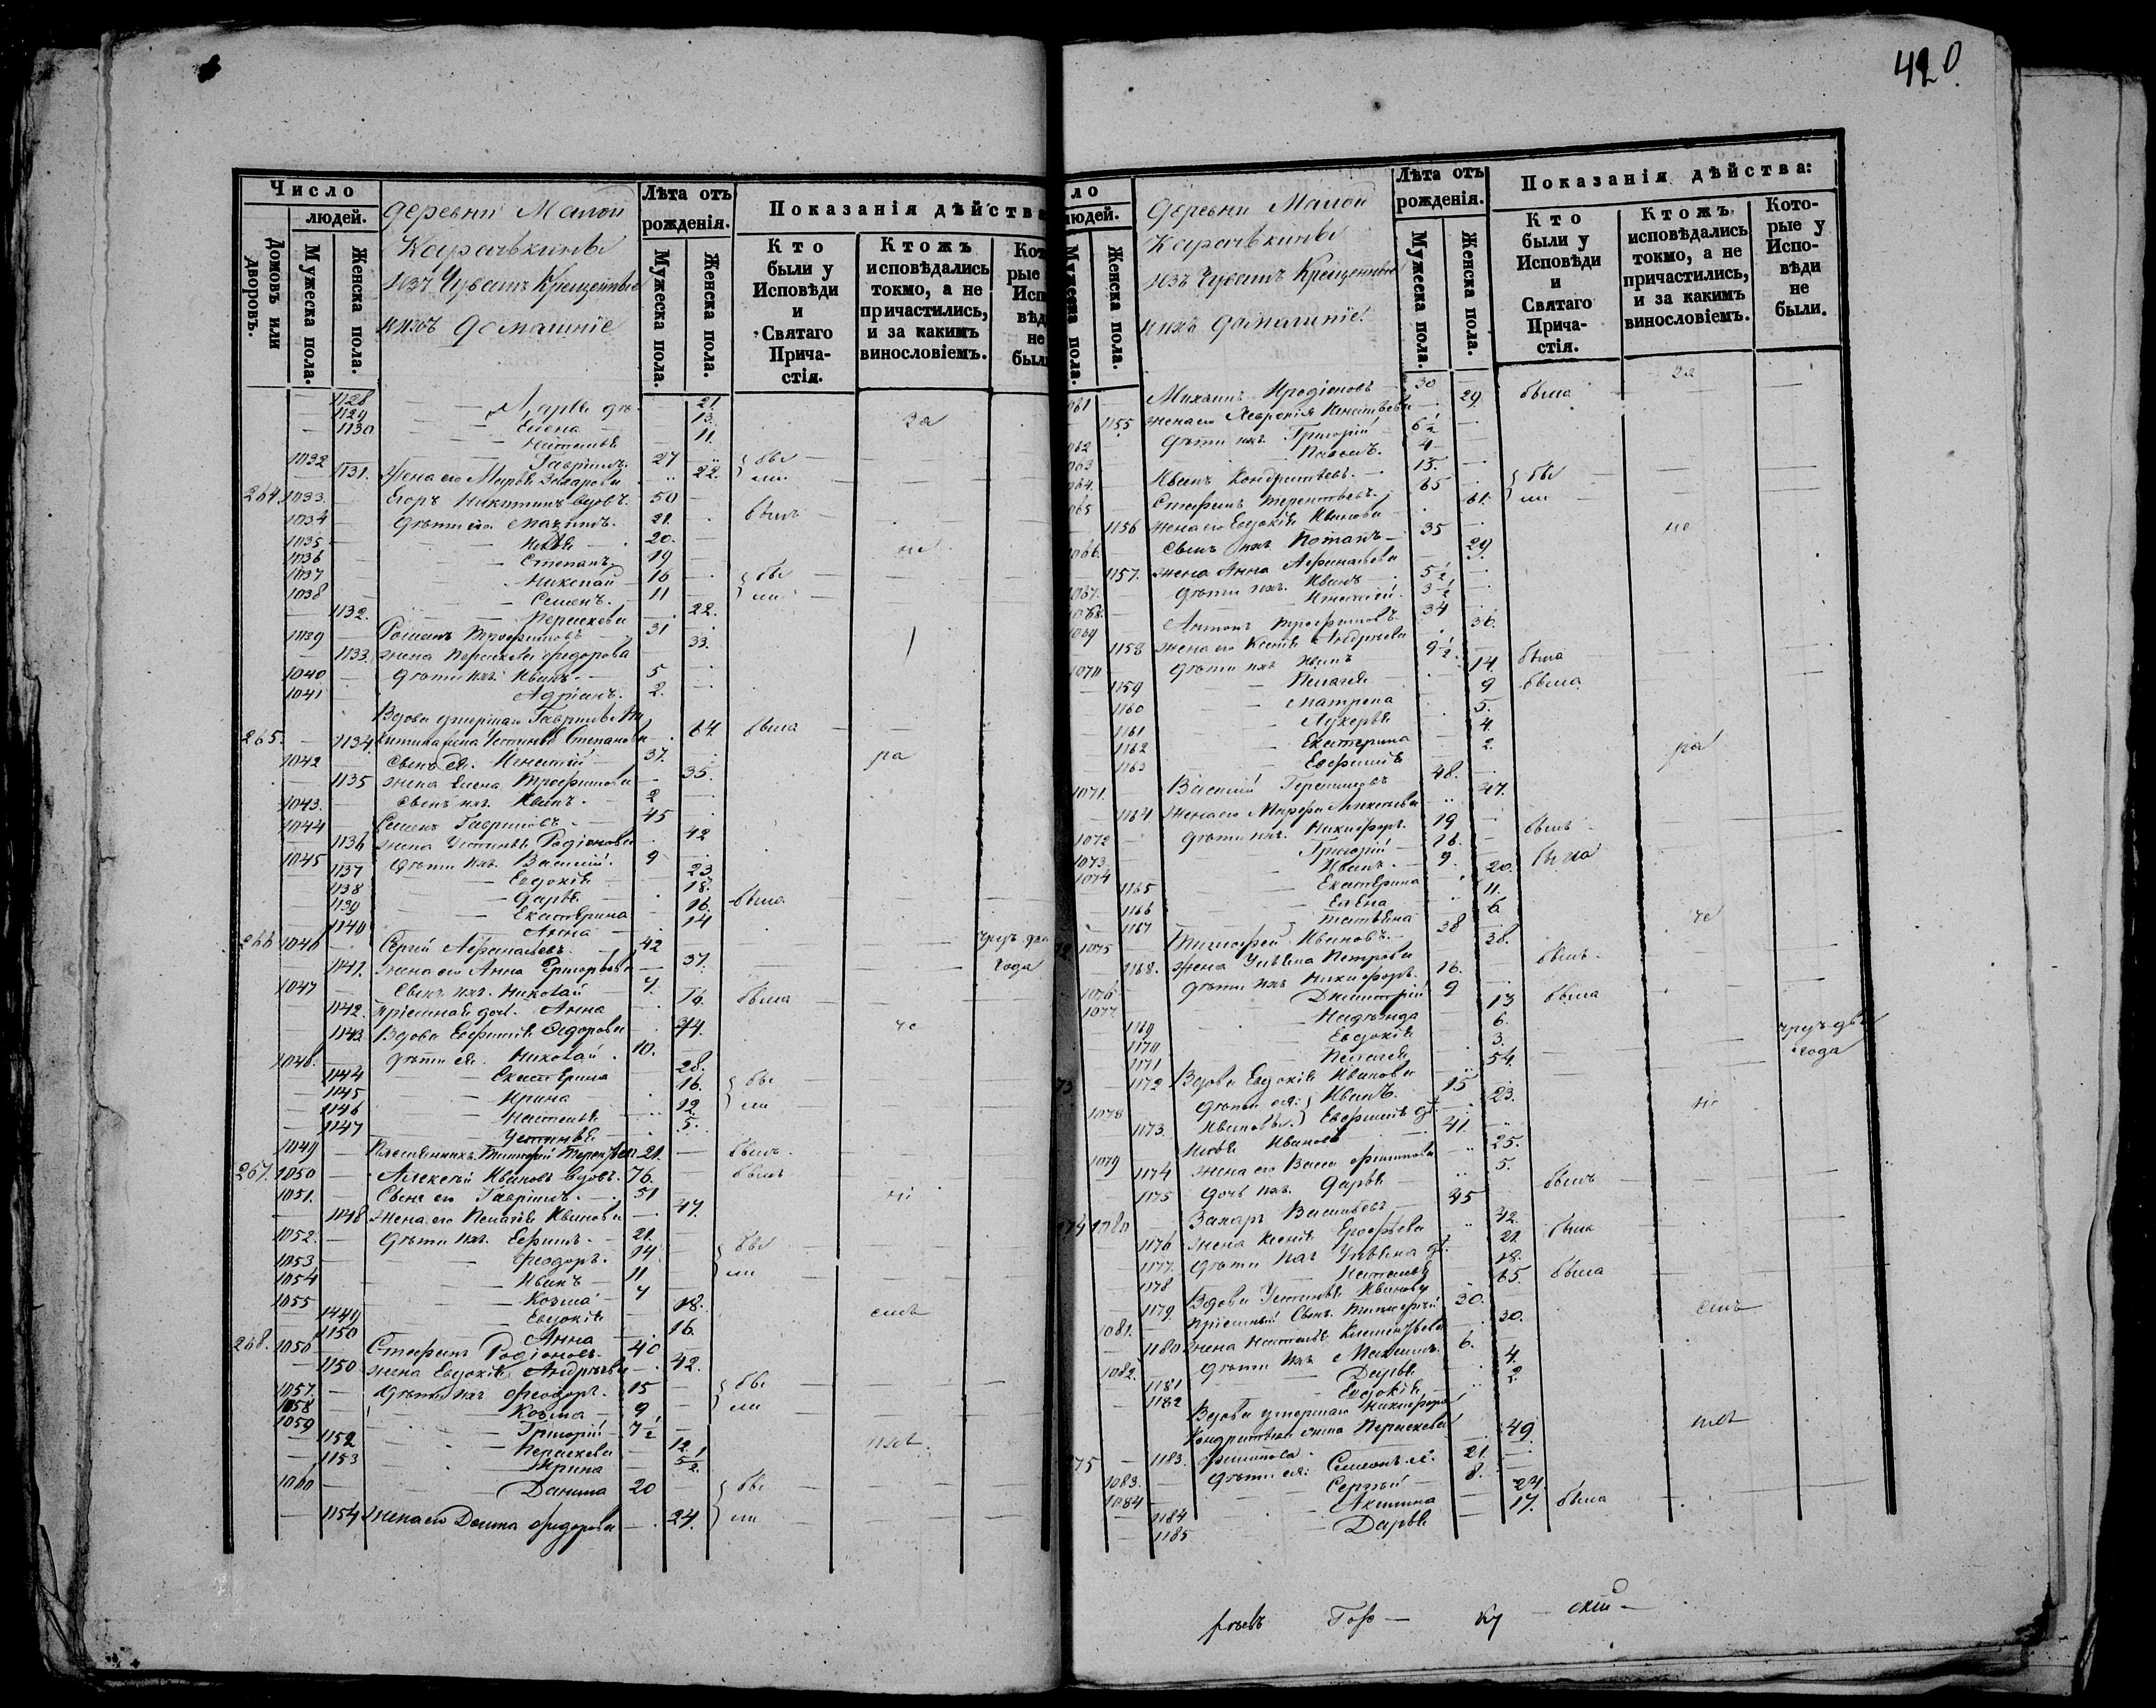 420
Число
людей.
Домовъ или дворовъ.
Мужеска пола.
Женска пола.
деревни Малой
Карачькины
изъ Чувашъ Крещенные
и ихъ домашніе
Лѣта отъ рожденія.
Мужеска пола.
Женска пола.
Показанія дѣйства
Кто были у Исповѣди и Святаго Причастія.
Ктожъ исповѣдались токмо, а не причастились, и за какимъ винословіемъ.
1128 21
1129 Елена 13
1130 Наталья 11
1032 Гавріилъ 27 бы
1131 жена его Марья Захарова 22 ли
264 1033 Егоръ Никитинъ вдовъ 50
1034 дѣти его Максимъ 21 былъ
1035 20
1036 Степанъ 19
1037 Николай 16 бы
1038 Семенъ 11 ли
1132 Параскева 22
1039 Романъ Трофимовъ 31
1133 жена Параскева Ѳедорова 33
1040 дѣти ихъ Иванъ 5
1041 Адріанъ 2
Вдова умершаго Гаврила Ни
265 1134 китина жена Устинья Степанова 64 была
1042 сынъ ея Игнатій 37
1135 жена Елена Трофимова 35
1043 сынъ ихъ Иванъ 2
1044 Семенъ Гавриловъ 45
1136 жена Устинья Родіонова 42
1045 дѣти ихъ Василій 9
1137 Евдокія 23
1138 Дарья 18
1139 Екатерина 16 была
1140 Анна 14
266 1046 Сергій Аѳанасьевъ 42
1141 жена его Анна Григорьева 37 года
1047 сынъ ихъ Николай 7
1142 Анна 19 была
1143 Вдова Евфимія Ѳедорова 44
1048 дѣти ея Николай 10
1144 Екатерина 28
1145 Ирина 16 бы
1146 Наталья 12 ли
1147 Устинья 5
1049 Племянникъ Тимоѳей Терентьевъ 21 былъ
267 1050 Алексѣй Ивановъ вдовъ 76 былъ
1051 Сынъ его Гавріилъ 51
1148 жена его Пелагея Иванова 47
1052 дѣти ихъ Ефимъ 21
1053 Ѳеодоръ 14 бы
1054 Иванъ 11 ли
1055 Козма 7
1449 Евдокія 18
1150 Анна 16
268 1050 Стефанъ Родіоновъ 40
1150 жена Евдокія Андреева 42
1057 дѣти ихъ Ѳеодоръ 15 бы
1058 Козма 9 ли
1059 Григорій 7 1/2
1152 Параскева 12
1153 Ирина 5 1/2
1060 Данила 20 бы
1154 жена его Домна Ѳедорова 24 ли
людей.
Мужеска пола.
Женска пола.
деревни Малой
Карачькины
изъ Чувашъ Крещенные
и ихъ домашніе
Лѣта отъ рожденія.
Мужеска пола.
Женска пола.
Показанія дѣйства:
Кто были у Исповѣди и Святаго Причастія.
Ктожъ исповѣдались токмо, а не причастились, и за какимъ винословіемъ.
Которые у Исповѣди не были.
Михаилъ Иродіоновъ 30 была
1155 жена его Игнатьева 29
дѣти ихъ Григорій 6 1/2
4
Иванъ Кондратьевъ 15 бы
Стефанъ Терентьевъ 65 ли
1156 жена его Евдокія Иванова 61
сынъ ихъ Потапъ 35
1157 жена Анна Аѳанасьева 29
дѣти ихъ Иванъ 5 1/2
Игнатій 3 1/2
Антонъ Трофимовъ 34
1158 жена его Ксенія Андреева 36
1070 дѣти ихъ Иванъ 9 1/2 была
1159 Пелагея 14 была
1160 Матрена 9
1161 Лукерья 5
1162 Екатерина 4
1163 Евфимія 2
1071 Василій Герасимовъ 48
1164 жена его Марфа 47
1072 дѣти ихъ Никифоръ 19 былъ
1073 Григорій 16
1074 Иванъ 9 была
1165 Екатерина 20
1166 Елена 11
1167 Татьяна 6
1075 Тимоѳей Ивановъ 38
1168 жена Ульяна Петрова 38 былъ
1076 дѣти ихъ Никифоръ 16
1077 Димитрій 9 была
1169 Надежда 13
1170 Евдокія 6
1171 Пелагея 3 года
1172 Вдова Евдокія Иванова 54
1078 дѣти ея: Иванъ 15
1173 Ивановы Евфимія 23
1079 Ивановъ 41
1174 жена его Васса Филиппова 25
1175 дочь ихъ Дарья 5 былъ
1080 Захаръ Васильевъ 45
1176 жена Ксенія Ерофѣева 42 была
1177 дѣти ихъ Ульяна 21
1178 Наталья 18
1179 Вдова Устинья Иванова 65 была
1081 пріемный сынъ Тимоѳей 30
1180 жена Наталья Климентьева 30
1082 дѣти ихъ Михаилъ 6
1181 Дарья 4
1182 Евдокія 2
Вдова умершаго Никифора
Кондратьева жена Параскева
1183 Филиппова 49
1083 дѣти ея: 21
1084 Сергѣй 8
1184 Акилина 24
1185 Дарья 17 была